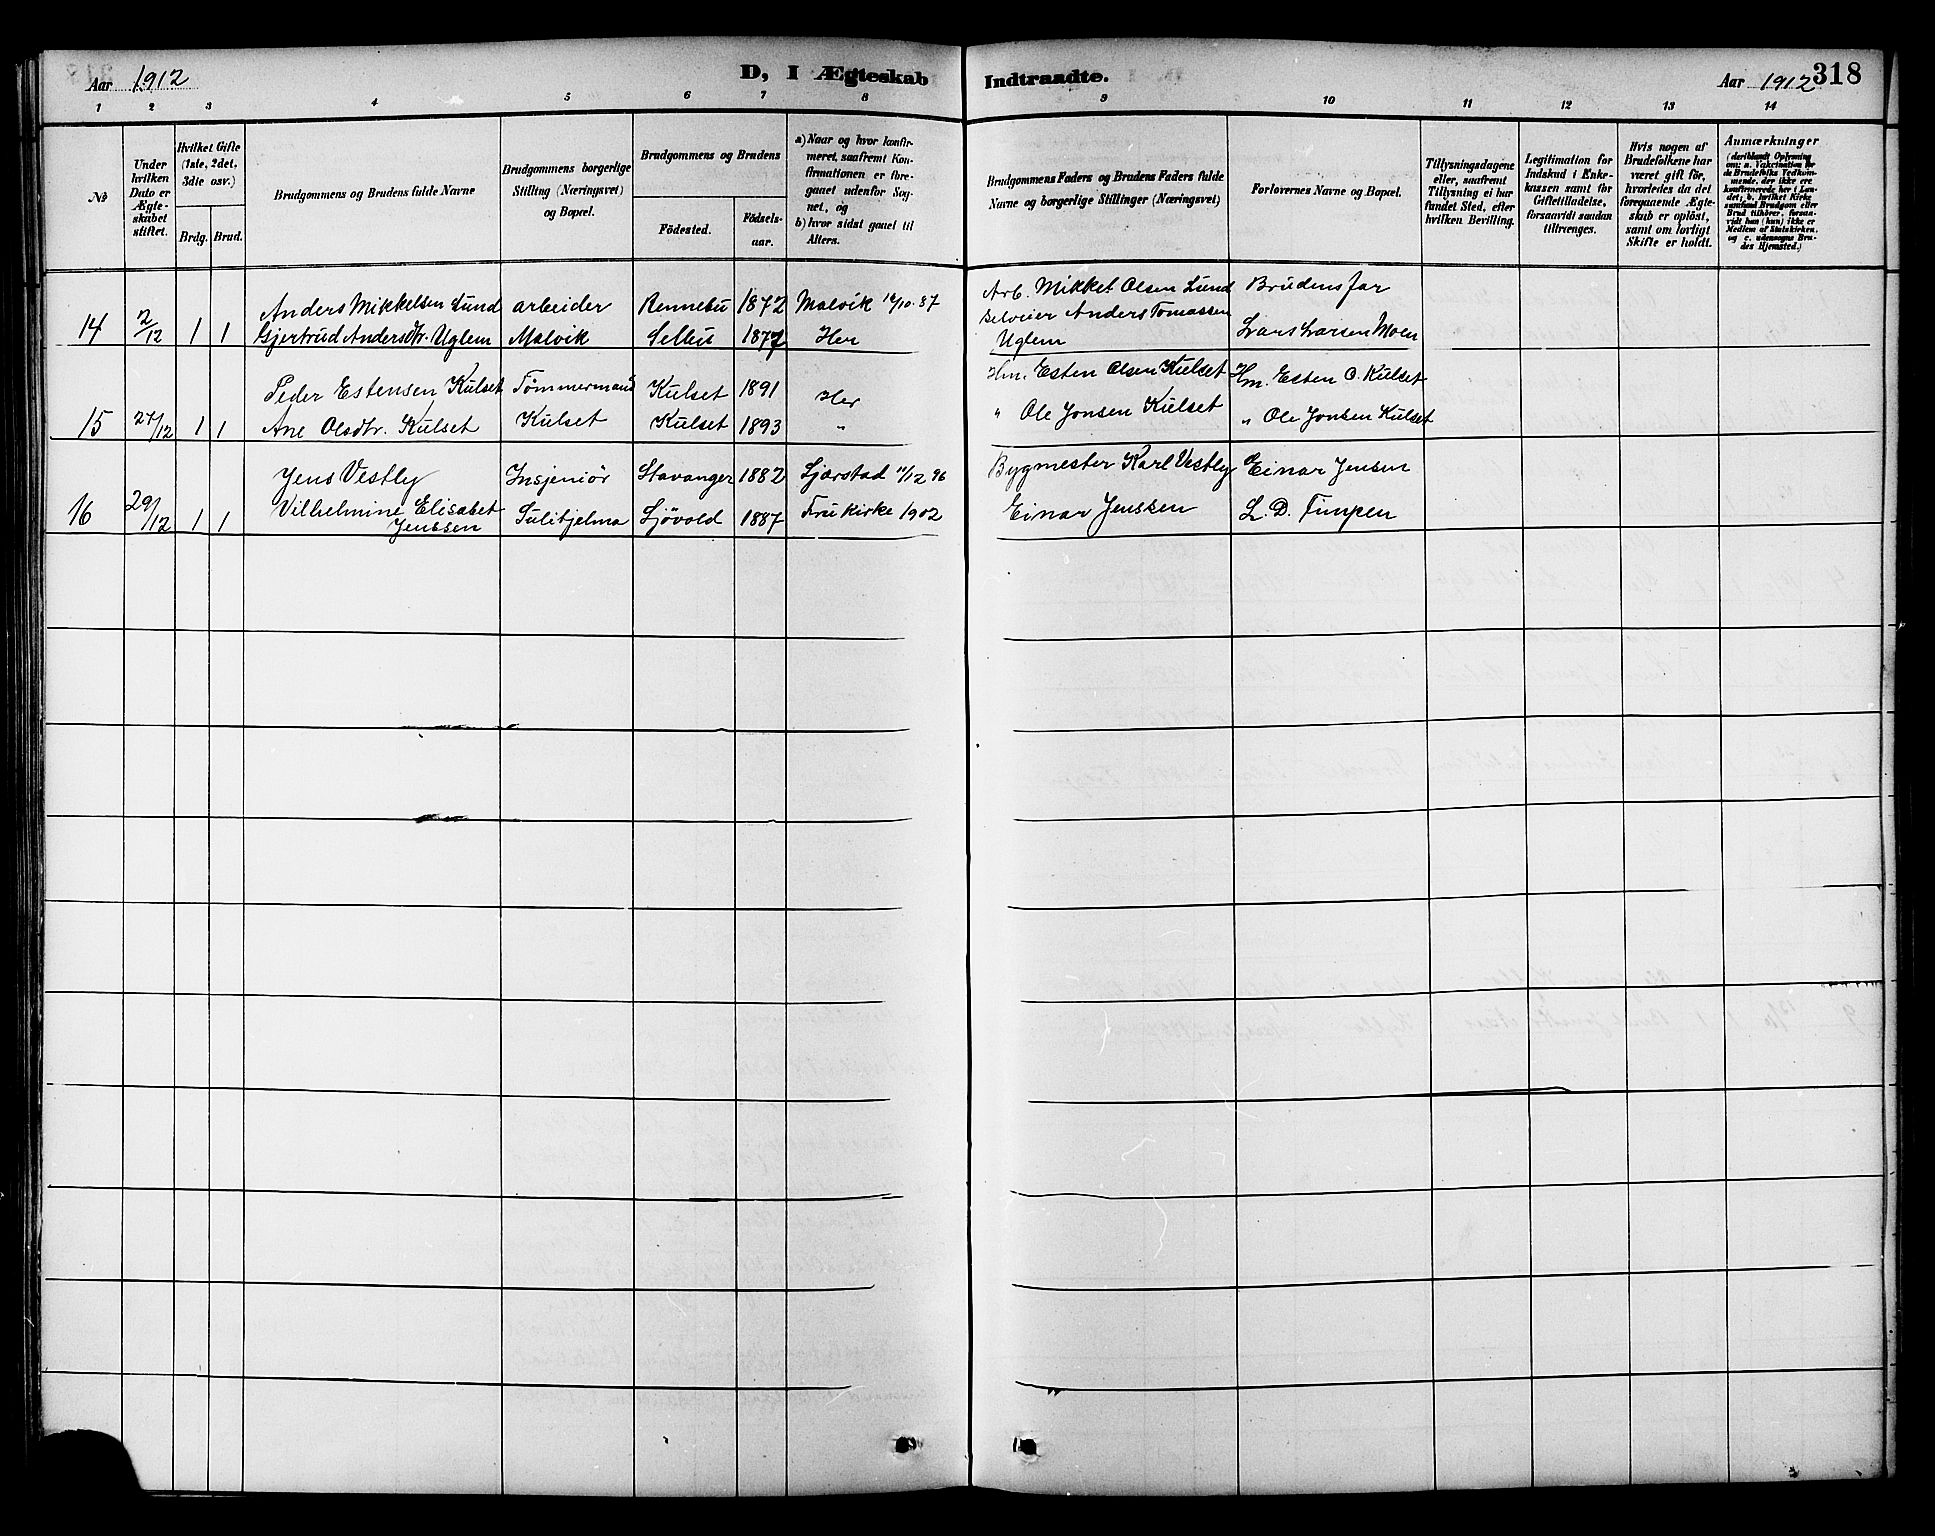 Aar 1912
D, I Ægteskab
Indtraadte.
Aar 1912
318
1 2 3 4 5 6 7 8 9 10 11 12 13 14
No
Under hvilken Dato er Ægteskabet stiftet.
Hvilket Gifte (1ste, 2det, 3die osv.)
Brdg. Brud.
Brudgommens og Brudens fulde Navne
Brudgommens borgerlige Stilling (Næringsvei) og Bopæl.
Brudgommens og Brudens
Födested.
Födselsaar.
a) Naar og hvor konfirmeret, saafremt Konfirmationen er foregaaet udenfor Sognet, og
b) hvor sidst gaaet til Alters.
Brudgommens Faders og Brudens Faders fulde Navne og borgerlige Stillinger (Næringsvei)
Forlovernes Navne og Bopæl.
Tillysningsdagene eller, saafremt Tillysning ei har fundet Sted, efter hvilken Bevilling.
Legitimation for Indskud i Enkekassen samt for Giftetilladelse, forsaavidt saadan tiltrænges.
Hvis nogen af Brudefolkene har været gift før, hvorledes da det foregaaende Ægteskab er opløst, samt om lovligt Skifte er holdt.
Anmærkninger
(deriblandt Oplysning om: a. Vaksination for de Brudefolks Vedkommende, der ikke ere konfirmerede her i Landet; b. hvilket Kirkesamfund Brudgom eller Brud tilhører, forsaavidt han (hun) ikke er Medlem af Statskirken, og c. udensogns Brudes Hjemsted.)
Anders Mikkelsen Lund arbeider Rennebu 1872 Malvik 16/10.87 Arb. Mikkel Olsen Lund Brudens far
14 2/12 1 1 Gjertrud Andersdtr. Uglem Malvik Selbu 1877 Her Selveier Anders Tomassen Uglem Lars Larsen Moen
Peder Estensen Kulset Tømmermand Kulset 1891 Her Hm. Esten Olsen Kulset Hm. Esten O. Kulset
15 27/12 1 1 Ane Olsdtr. Kulset Kulset Kulset 1893 " " Ole Jonsen Kulset " Ole Jonsen Kulset
Jens Vestly Insjeniör Stavanger 1882 11/12 96 Bygmester Karl Vestly Einar Jensen
16 29/12 1 1 Vilhelmine Elisabet Jenssen Sulitjelma Sjövold 1887 Frue Kirke 1902 Einar Jenssen